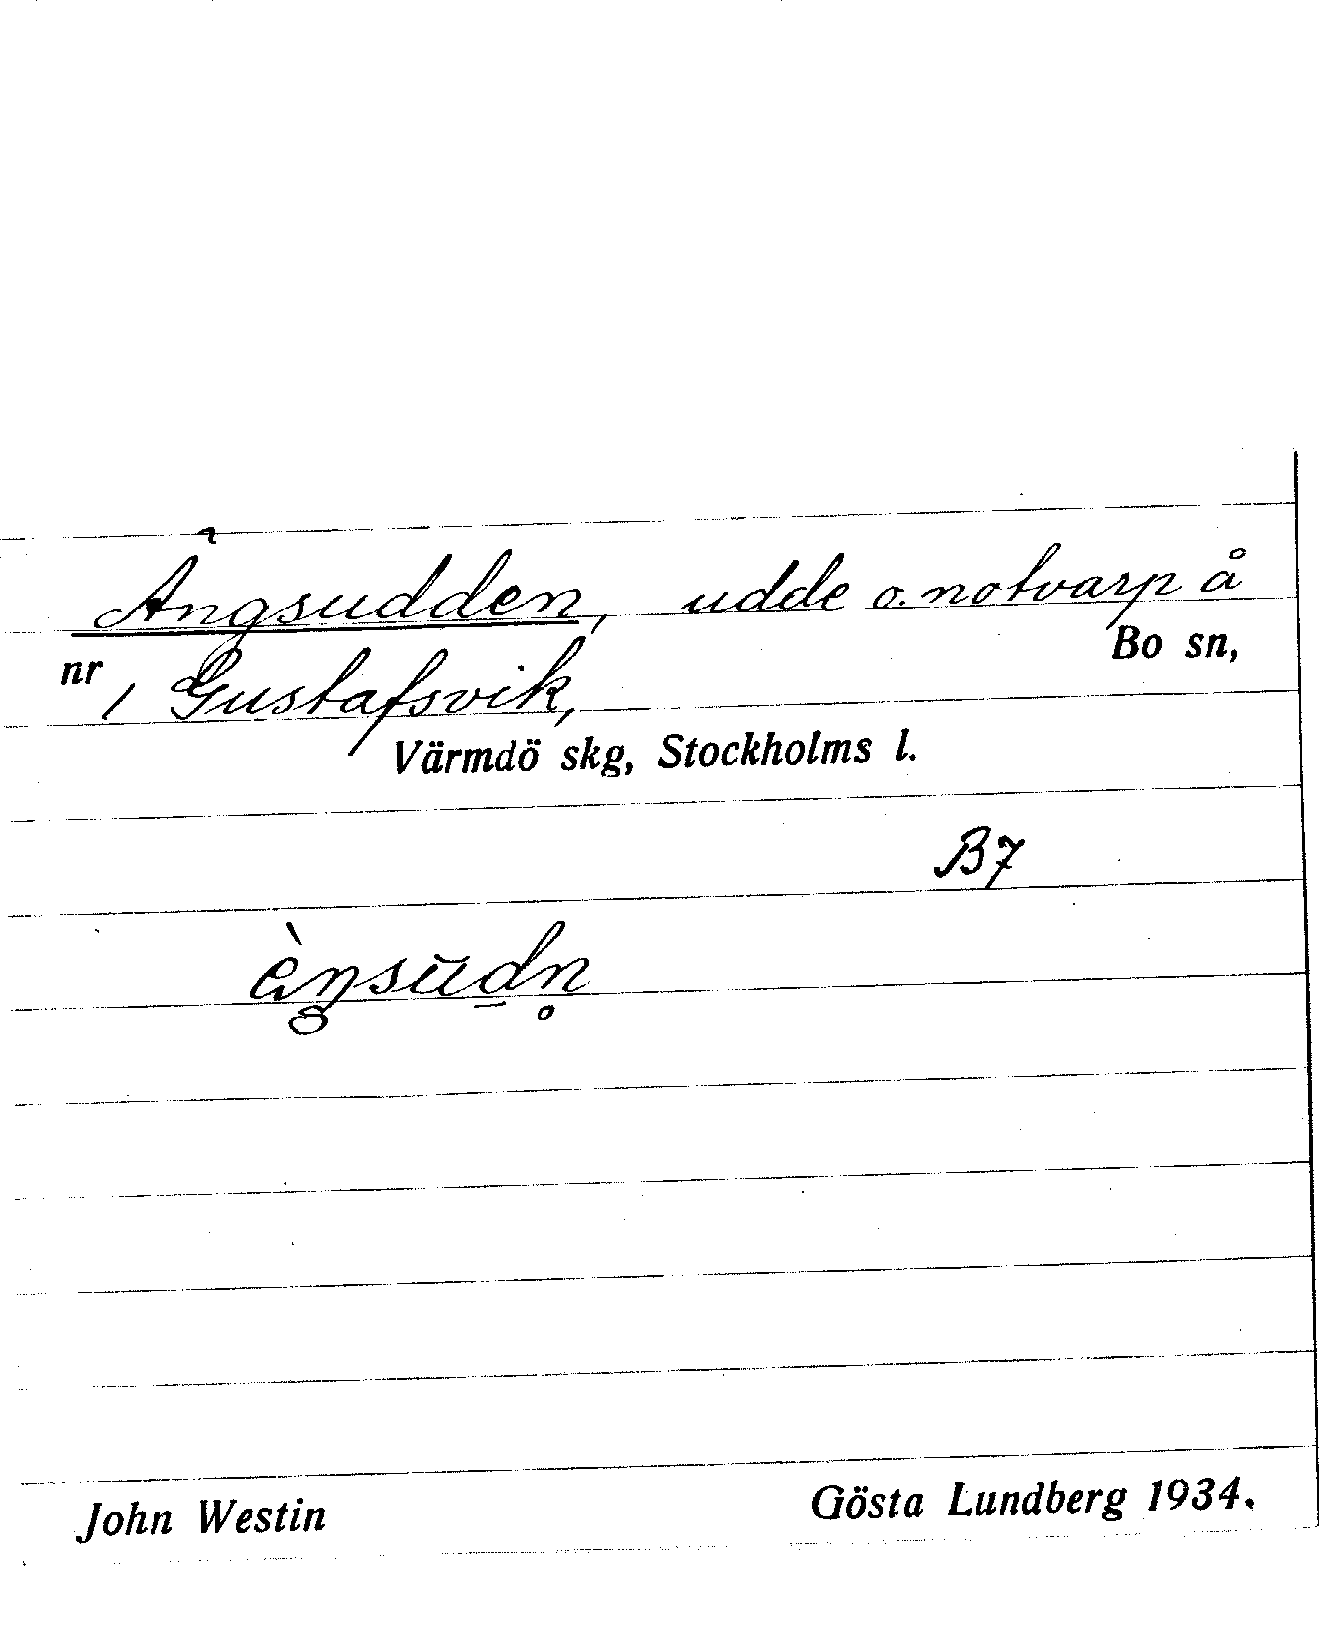 Ängsudden, udde o. notvarp å
Bo sn,
nr 1 Gustafsvik,
Värmdö skg, Stockholms l.
B7
èŋsūdn̥
John Westin
Gösta Lundberg 1934.